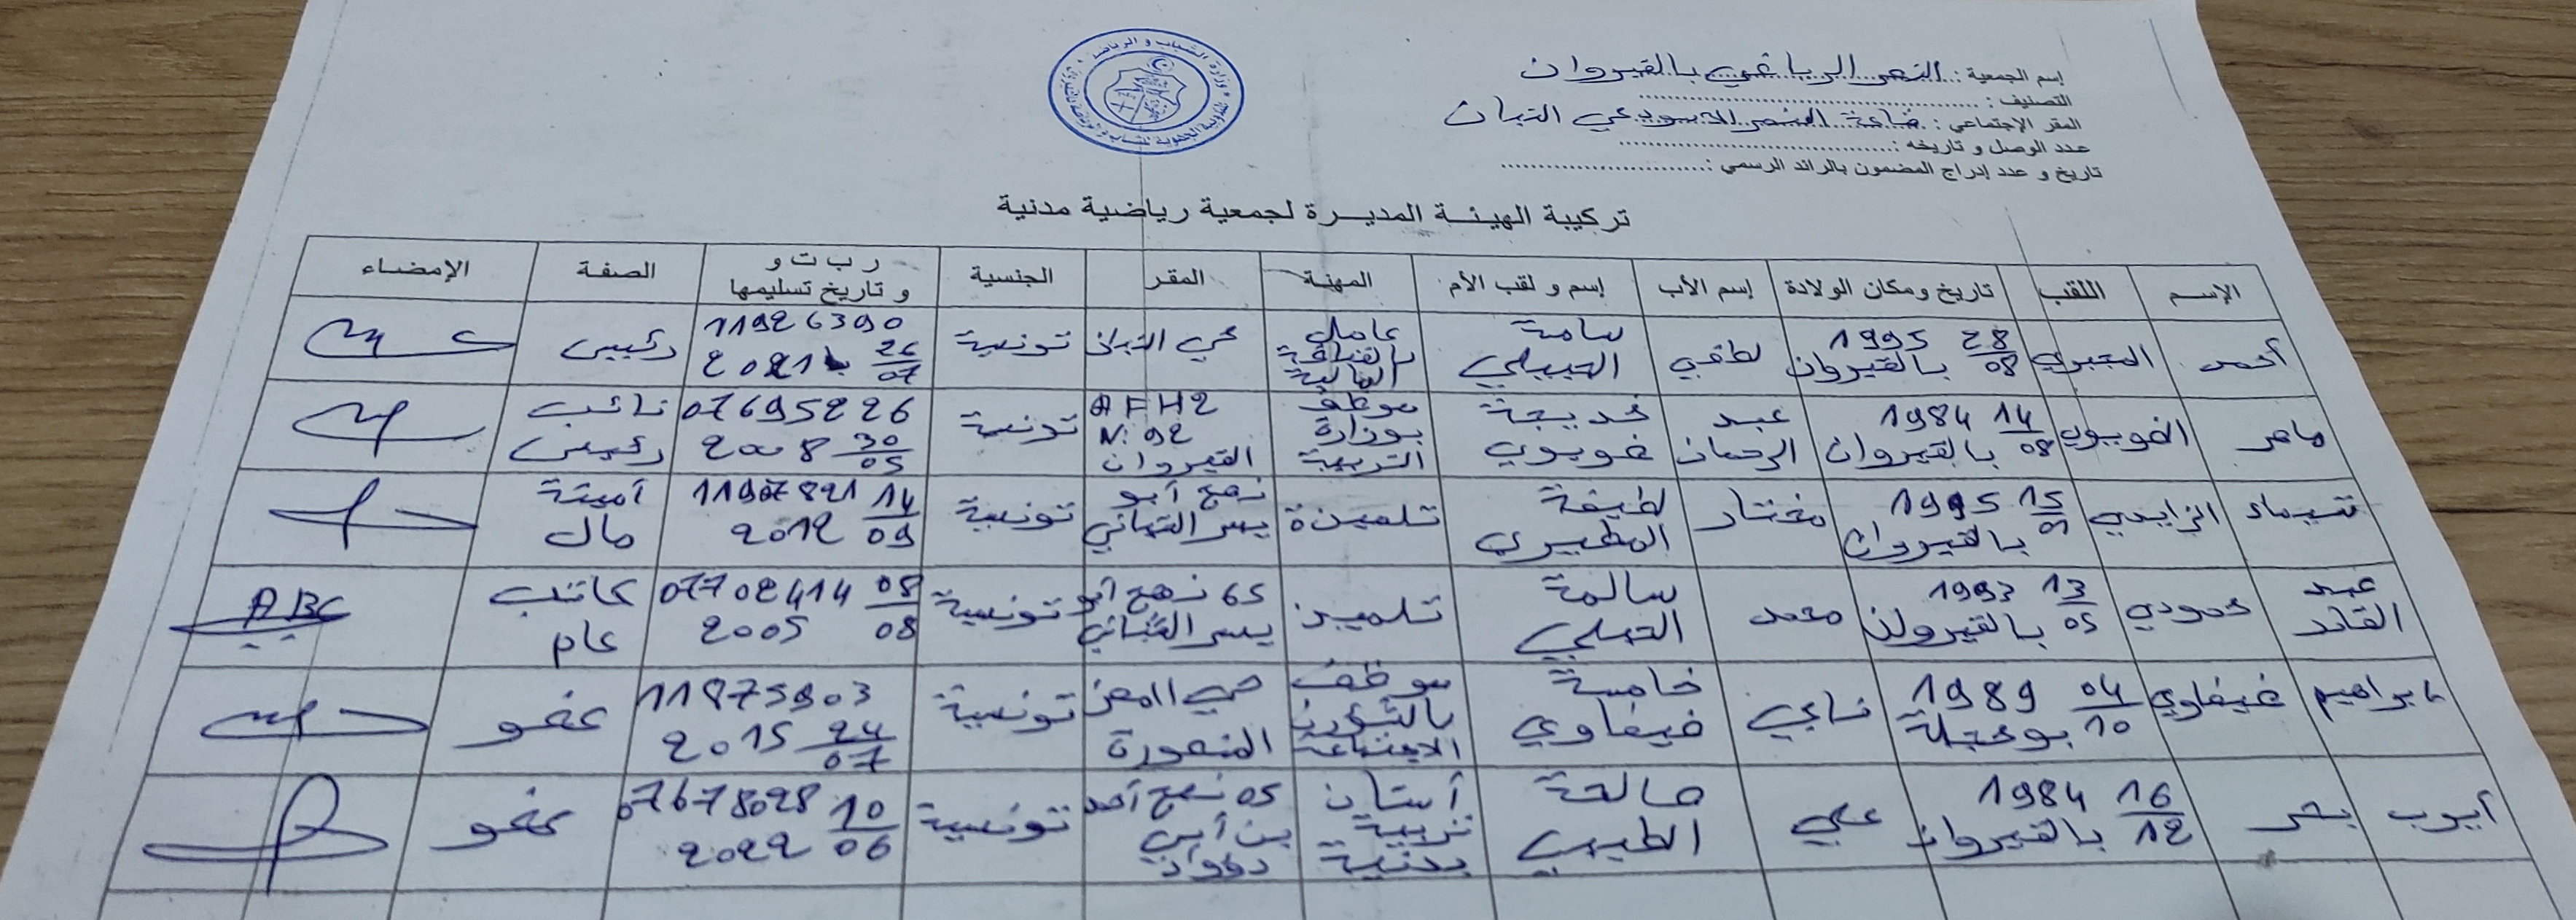 وزارة الشباب و الرياضة
المندوبية الجهوية للشباب و الرياضة
إسم الجمعية : النصر الرياضي بالقيروان
التصنيف :
المقر الإجتماعي : حي التبان
عدد الوصل و تاريخه :
تاريخ و عدد إدراج المضمون بالرائد الرسمي :
تركيبة الهيئة المديرة لجمعية رياضية مدنية
الإسم اللقب تاريخ ومكان الولادة إسم الأب إسم و لقب الأم المهنة المقر الجنسية ر ب ت و و تاريخ تسليمها الصفة الإمضاء
أحمد 28/08 1995 بالقيروان لطفي سامة عامل حي التبان تونسية 11926390 26/07 2021 رئيس
ماهر 14/08 1984 بالقيروان عبد الرحمان خديجة موظف بوزارة التربية AFH2 N: 92 القيروان تونسية 07695226 30/05 2008 نائب رئيس
شيماء الزايدي 15 1995 بالقيروان مختار لطيفة المطيري تلميذة نهج أبو يسر تونسية 14/09 2012 أمينة مال
عبد القادر حمودي 13/05 1993 بالقيروان محمد سالمة تلميذ 65 نهج أبو يسر تونسية 07702414 08/08 2005 كاتب عام ABC
ابراهيم ضيفاوي 04/10 1989 بوحجلة ناجي خامسة ضيفاوي موظف بالشؤون الاجتماعية حي المعز المنصورة تونسية 11875903 24/07 2015 عضو
أيوب 16/12 1984 بالقيروان علي صالحة أستاذ تربية بدنية 05 نهج أحمد بن أبي تونسية 07678028 10/06 2022 عضو